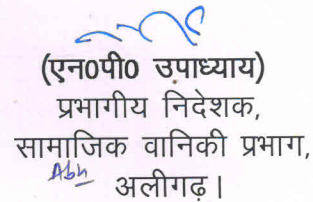 (एन0पी0 उपाध्याय)
प्रभागीय निदेशक,
सामाजिक वानिकी प्रभाग,
अलीगढ़।